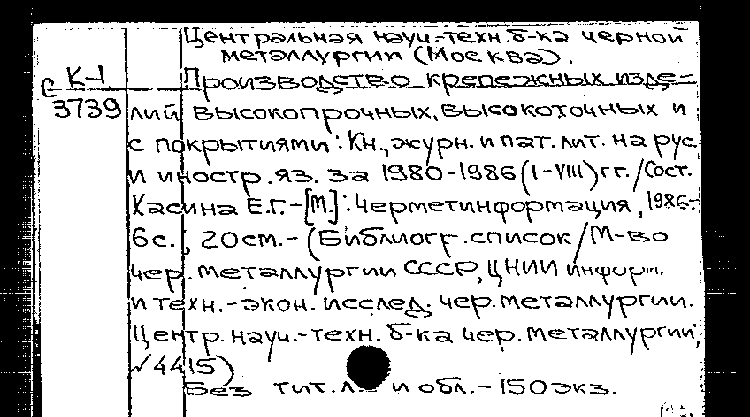 Центральная науч.-техн. б-ка черной
металлургии (Москва).
К-1 Производство крепежных изде-
3739 лий высокопрочных, высокоточных и
с покрытиями: Кн., журн. и пат. лит. на рус.
и иностр. яз. за 1980-1986 (I-VIII) гг. / Сост.
Касина Е.Г. - [М.]: Черметинформация, 1986.-
6с.; 20см. - (Библиогр. список / М-во
чер. металлургии СССР, ЦНИИ информ.
и техн.-экон. исслед. чер. металлургии.
Центр. науч.-техн. б-ка чер. металлургии;
√4415)
Без тит. л. и обл. - 150 экз.